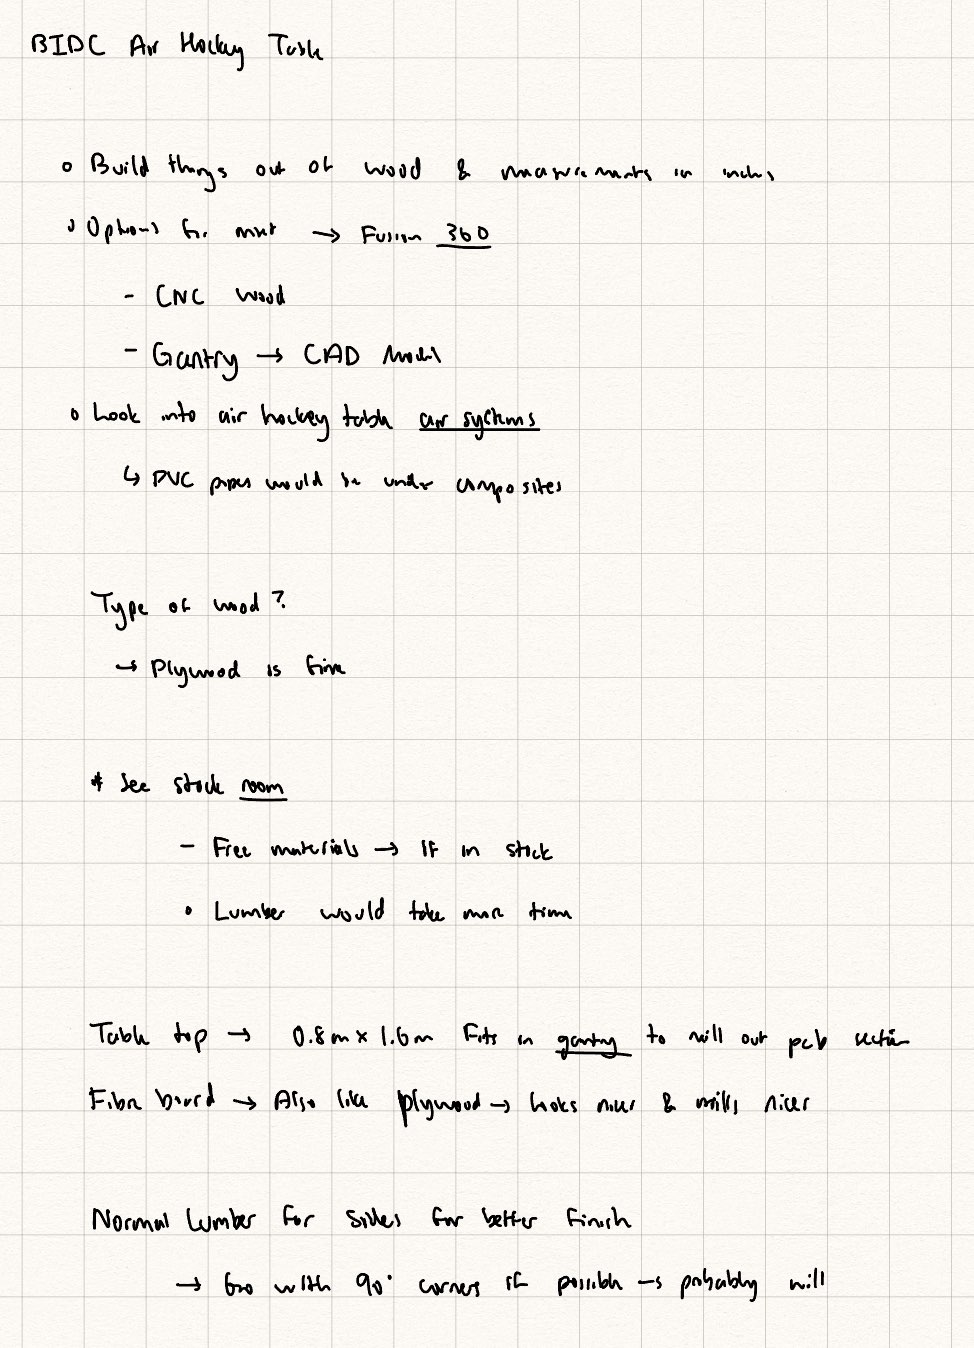 BIDC Air Hockey Table
◦ Build things out of wood & measurements in inches
◦ Options for → Fusion 360
- CNC wood
- Gantry → CAD Model
◦ Look into air hockey table air systems
↳ PVC pipes would be under composites
Type of wood?
→ Plywood is fine
* See stock room
- Free materials → If in stock
• Lumber would take more time
Table top → 0.8m x 1.6m Fits in gantry to mill out pcb section
Fibre board → Also like plywood → looks nicer & mills nicer
Normal Lumber for sides for better finish
→ Go with 90° corners if possible → probably will